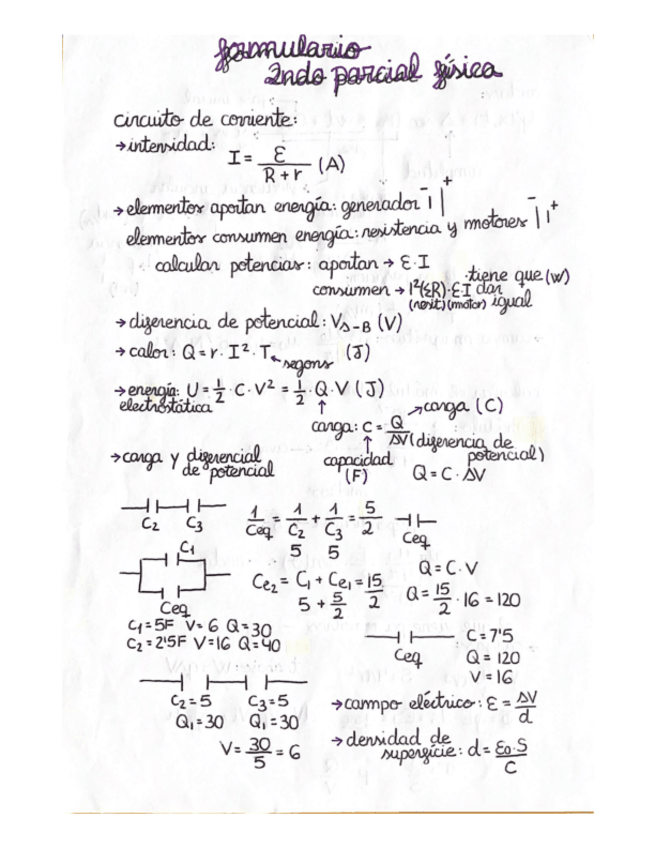 formulario
2ndo parcial física
circuito de corriente:
→intensidad: I = ε / (R + r) (A)
→elementos aportan energía: generador - | | +
elementos consumen energía: resistencia y motores - | | +
calcular potencias: aportan → ε·I
consumen → I²(ΣR)·ε·I
(resist) (motor)
·tiene que (W)
dar
igual
→diferencia de potencial: V_A-B (V)
→calor: Q = r · I² · T (J)
segons
→energía: U = 1/2 · C · V² = 1/2 · Q · V (J)
electrostática
carga (C)
carga: C = Q / ΔV (diferencia de
potencial)
capacidad
(F)
→carga y diferencial
de potencial
Q = C · ΔV
C2 C3
1/Ceq = 1/C2 + 1/C3 = 5/2
5 5
Ceq
C1
Ceq
Ce2 = C1 + Ce1 = 15/2
5 + 5/2
Q = C · V
Q = 15/2 · 16 = 120
C1 = 5F V = 6 Q = 30
C2 = 2'5F V = 16 Q = 40
Ceq
C = 7'5
Q = 120
V = 16
C2 = 5 C3 = 5
Q1 = 30 Q1 = 30
V = 30/5 = 6
→campo eléctrico: ε = ΔV / d
→densidad de
superficie: d = ε0 · S / C